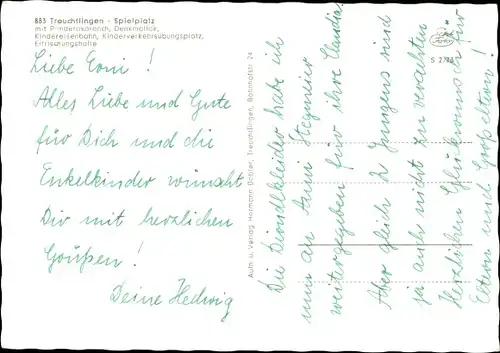 883 Treuchtlingen - Spielplatz
mit Denkmallok,
Kindereisenbahn, Kinderverkehrsübungsplatz,
Erfrischungshalle
Liebe Erni!
Alles Liebe und Gute
für Dich und die
Enkelkinder wünscht
Dir mit herzlichen
Grüßen!
Deine Hedwig
Aufn. u. Verlag Hermann Treuchtlingen, Bahnhofstr. 24
Die Dirndlkleider habe ich
nun an Anni Stegmeier
weitergegeben für ihre Claudia.
Aber gleich 2 Jungens sind
ja auch nicht zu verachten
Herzlichen Glückwunsch für
Eltern und Großeltern!